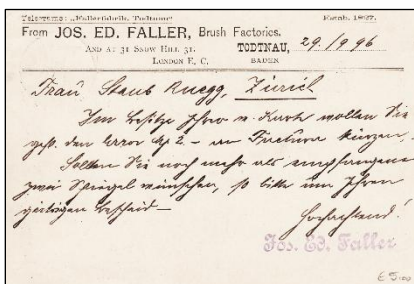 Telegramme: „Fallerfabrik, Todtnau“
Estab. 1867.
From JOS. ED. FALLER, Brush Factories.
AND AT 31 SNOW HILL 31.
LONDON E, C,
TODTNAU, 29./9 96
BADEN
Frau Staub Ruegg, Zürich
Im Besitze Ihrer w. Karte wollen Sie
gefl. den Error 2 – an Factura kürzen.
Sollten Sie noch mehr als empfangene
zwei Spiegel wünschen, so bitte um Ihren
gütigen Bescheid –
Hochachtend!
Jos. Ed. Faller